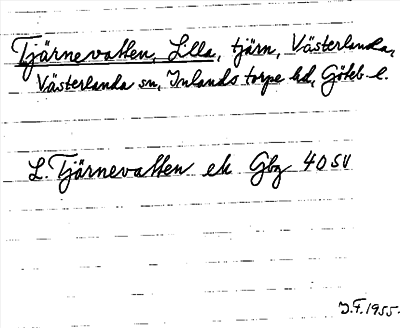 Tjärnevatten, Lilla, tjärn, Västerlanda,
Västerlanda sn, Inlands torpe hd, Göteb. l.
L. Tjärnevatten ek Gbg 40 SV
J.F. 1955.